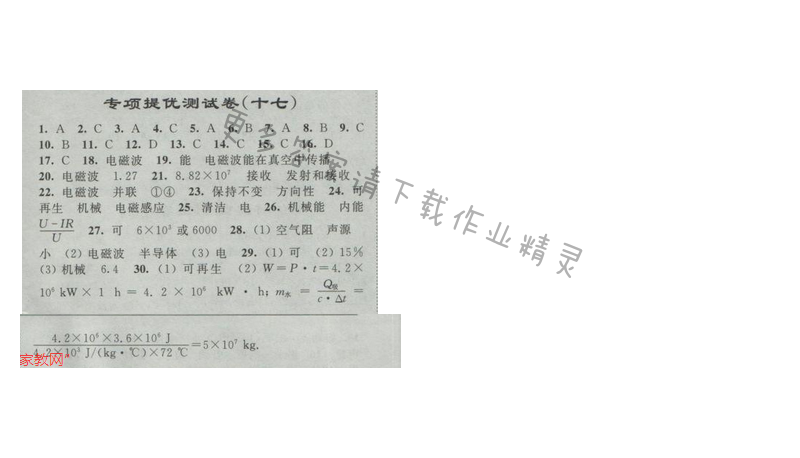 专项提优测试卷(十七)
1. A 2. C 3. A 4. C 5. A 6. B 7. A 8. B 9. C
10. B 11. C 12. D 13. C 14. C 15. C 16. D
17. C 18. 电磁波 19. 能 电磁波能在真空中传播
20. 电磁波 1.27 21. 8.82×10⁷ 接收 发射和接收
22. 电磁波 并联 ①④ 23. 保持不变 方向性 24. 可
再生 机械 电磁感应 25. 清洁 电 26. 机械能 内能
(U-IR)/U 27. 可 6×10³或6000 28. (1) 空气阻 声源
小 (2) 电磁波 半导体 (3) 电 29. (1) 可 (2) 15%
(3) 机械 6.4 30. (1) 可再生 (2) W=P·t=4.2×
10⁶ kW×1 h=4.2×10⁶ kW·h; m水=Q吸/(c·Δt)=
(4.2×10⁶×3.6×10⁶ J)/(4.2×10³ J/(kg·℃)×72 ℃)=5×10⁷ kg.
家教网
更多答案请下载作业精灵